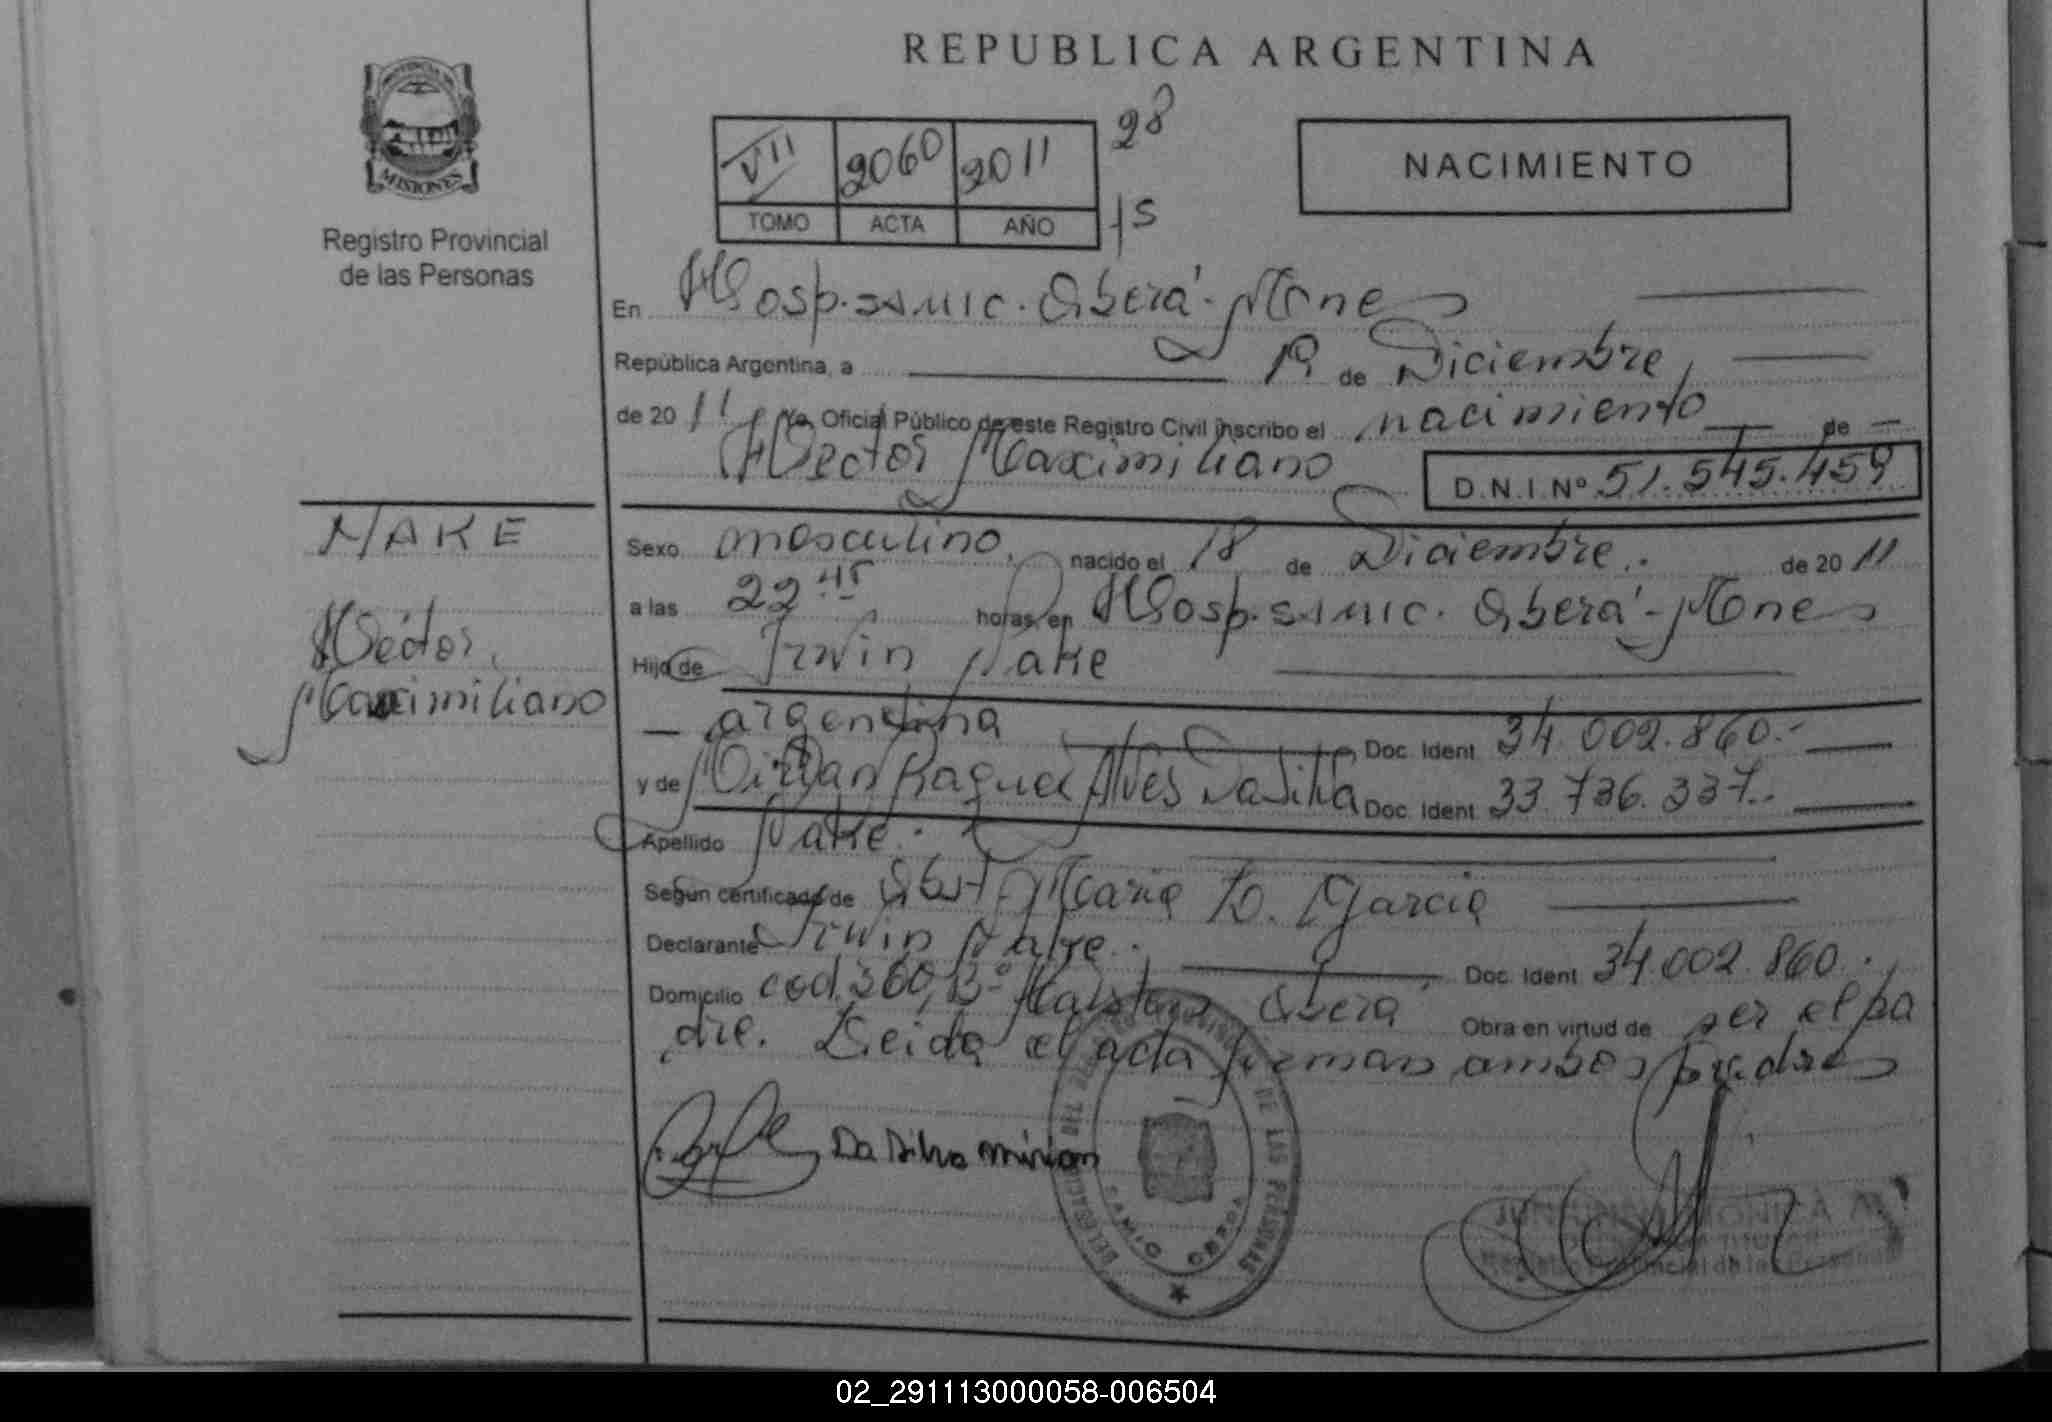 REPUBLICA ARGENTINA
PROVINCIA DE
MISIONES
Registro Provincial
de las Personas
VII 2060 2011
TOMO ACTA AÑO
28
15
NACIMIENTO
En Hosp. SAMIC. Oberá - Mnes
República Argentina, a 19 de Diciembre
de 2011 yo, Oficial Público de este Registro Civil inscribo el nacimiento de
Hector Maximiliano
D.N.I. Nº 51.545.459
NAKE
Héctor
Maximiliano
Sexo masculino. nacido el 18 de Diciembre. de 2011
a las 22 45 horas, en Hosp. SAMIC. Oberá - Mnes
Hijo de Irwin Nake
argentina Doc. Ident. 34.002.860.-
y de Raquel Alves Da Silva Doc. Ident. 33.736.337.-
Apellido Nake.
Según certificado de Obst. Maria D. Garcia
Declarante Irwin Nake. Doc. Ident. 34.002.860.
Domicilio Oberá Obra en virtud de ser el pa
dre. Leida el acta firman ambos padres
Da Silva Mirian
DE LAS PERSONAS
MONICA
Registro Provincial de las Personas
02_291113000058-006504